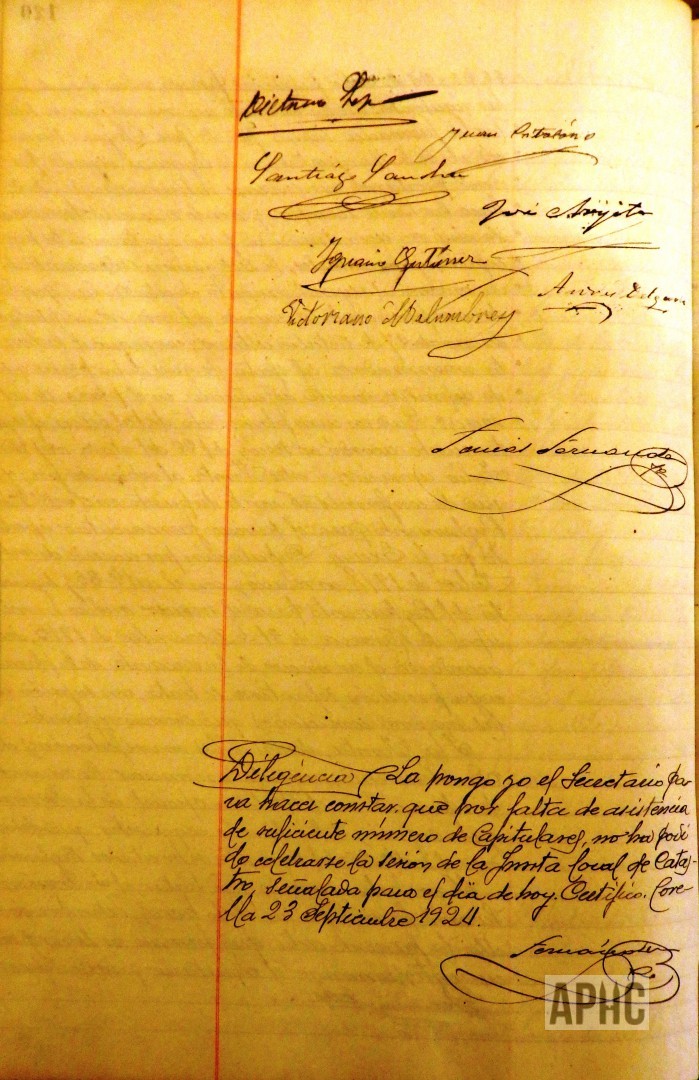 Juan Catalán
Santiago Sanchez
José Arigita
Ignacio Gutierrez
Victoriano Malumbres
Tomás Fernandez
Diligencia La pongo yo el Secretario pa-
ra hacer constar, que por falta de asistencia
de suficiente número de Capitulares, no ha podi
do celebrarse la sesión de la Junta local de Catas-
tro, señalada para el día de hoy. Certifico. Core-
lla 23 Septiembre 1924.
Fernández
APHC